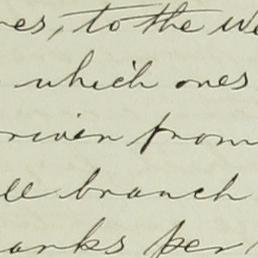 es, to the we
which ones
riven from
ll branch
anks per